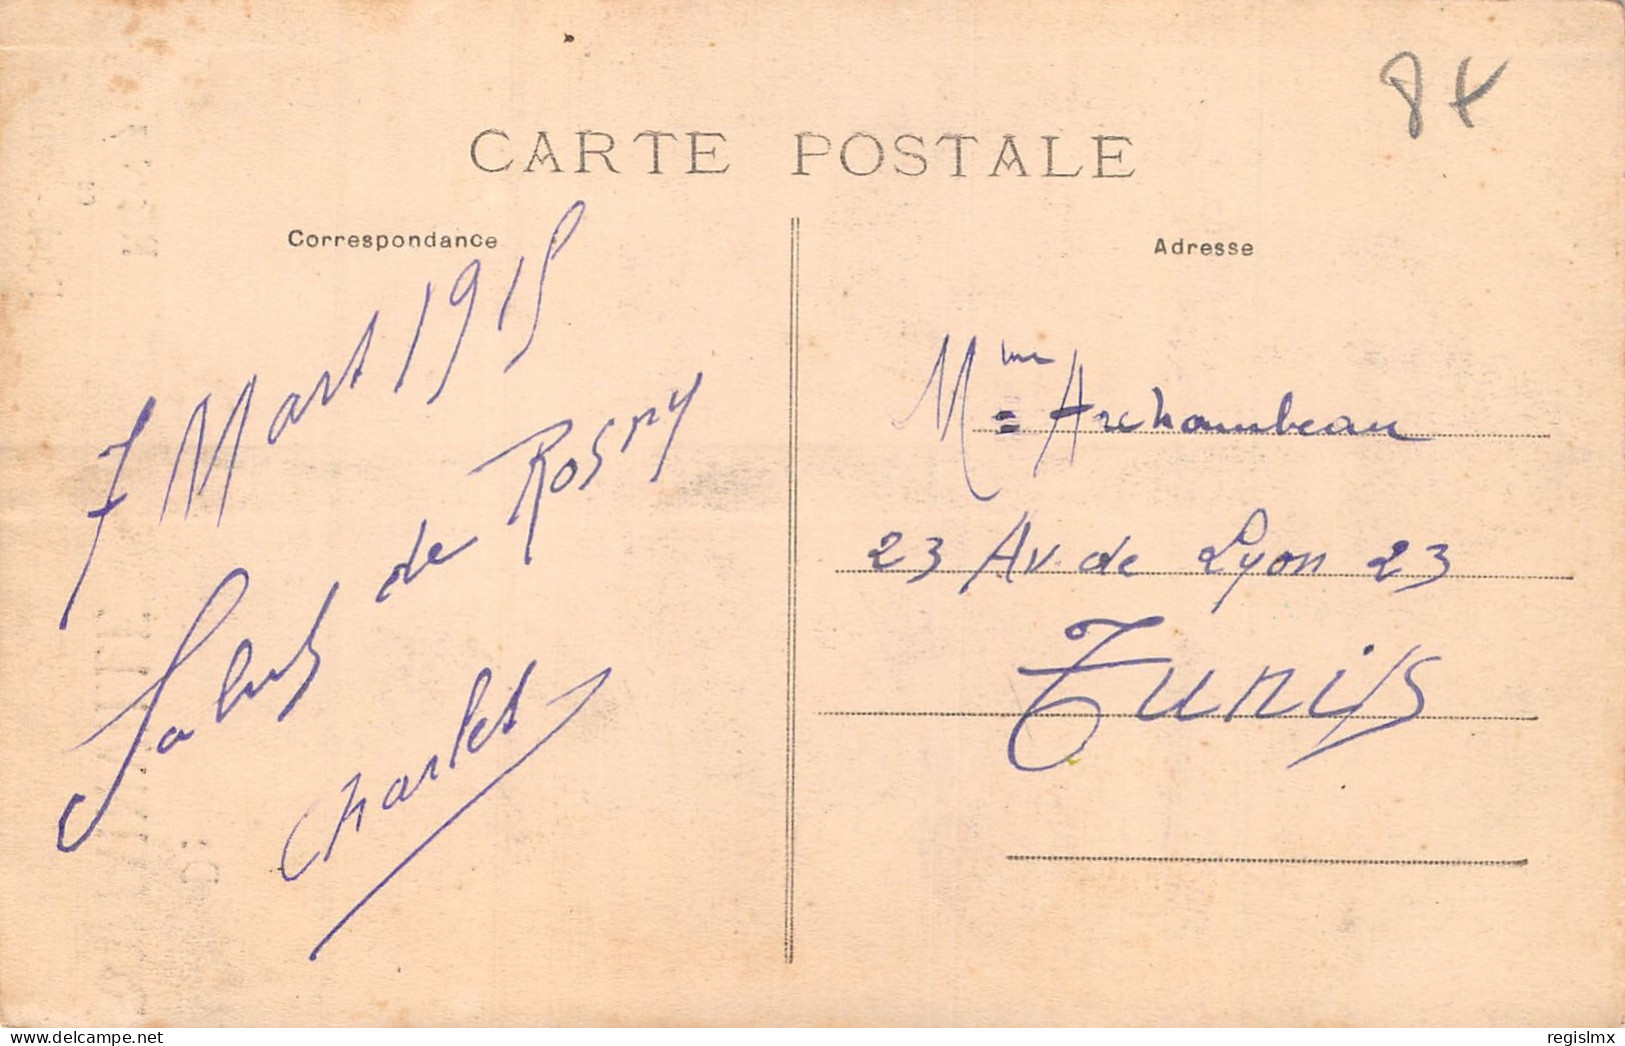 8x
CARTE POSTALE
Correspondance
7 Mars 1915
Salut de Rosny
Charlet
Adresse
Mme Archambeau
23 Av. de Lyon 23
Tunis
www.delcampe.net
regislmx